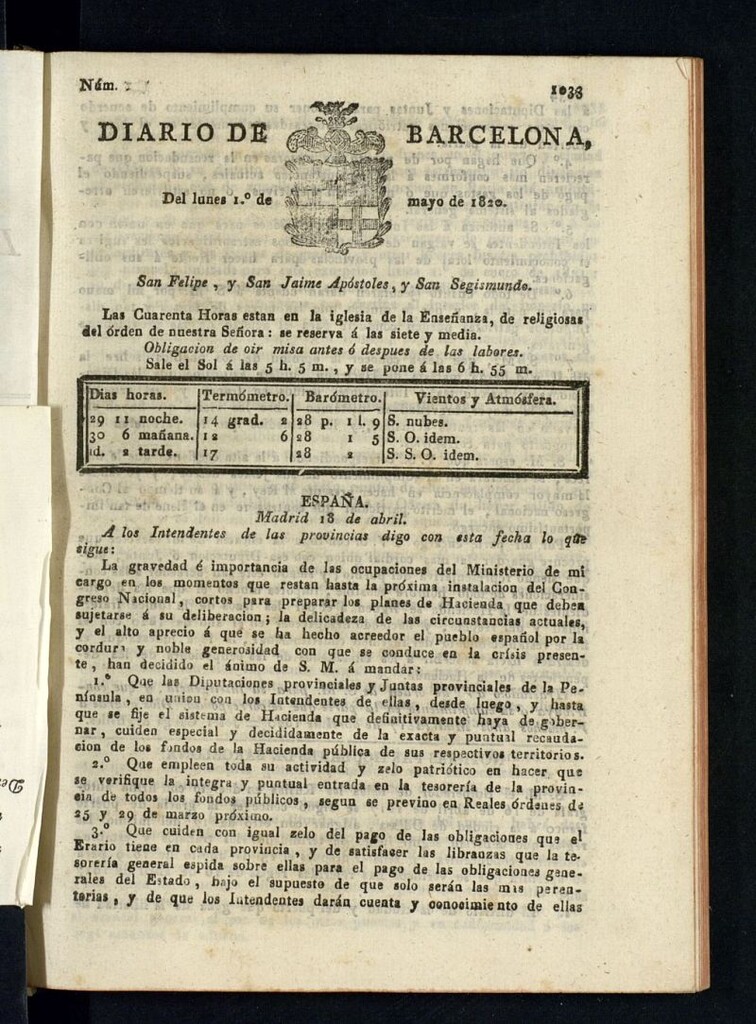 Núm. 1033
DIARIO DE BARCELONA,
Del lunes 1.º de mayo de 1820.
San Felipe, y San Jaime Apóstoles, y San Segismundo.
Las Cuarenta Horas estan en la iglesia de la Enseñanza, de religiosas
del órden de nuestra Señora: se reserva á las siete y media.
Obligacion de oir misa antes ó despues de las labores.
Sale el Sol á las 5 h. 5 m., y se pone á las 6 h. 55 m.
Dias horas. Termómetro. Barómetro. Vientos y Atmósfera.
29 11 noche. 14 grad. 2 28 p. 1 l. 9 S. nubes.
30 6 mañana. 12 6 28 1 5 S. O. idem.
id. 2 tarde. 17 28 2 S. S. O. idem.
ESPAÑA.
Madrid 18 de abril.
A los Intendentes de las provincias digo con esta fecha lo que
sigue:
La gravedad é importancia de las ocupaciones del Ministerio de mi
cargo en los momentos que restan hasta la próxima instalacion del Con-
greso Nacional, cortos para preparar los planes de Hacienda que deben
sujetarse á su deliberacion; la delicadeza de las circunstancias actuales,
y el alto aprecio á que se ha hecho acreedor el pueblo español por la
cordura y noble generosidad con que se conduce en la crísis presen-
te, han decidido el ánimo de S. M. á mandar:
1.º Que las Diputaciones provinciales y Juntas provinciales de la Pe-
nínsula, en union con los Intendentes de ellas, desde luego, y hasta
que se fije el sistema de Hacienda que definitivamente haya de gober-
nar, cuiden especial y decididamente de la exacta y puntual recauda-
cion de los fondos de la Hacienda pública de sus respectivos territorios.
2.º Que empleen toda su actividad y zelo patriótico en hacer que
se verifique la integra y puntual entrada en la tesorería de la provin-
cia de todos los fondos públicos, segun se previno en Reales órdenes de
25 y 29 de marzo próximo.
3.º Que cuiden con igual zelo del pago de las obligaciones que el
Erario tiene en cada provincia, y de satisfacer las libranzas que la te-
sorería general espida sobre ellas para el pago de las obligaciones gene-
rales del Estado, bajo el supuesto de que solo serán las mas peren-
torias, y de que los Intendentes darán cuenta y conocimiento de ellas